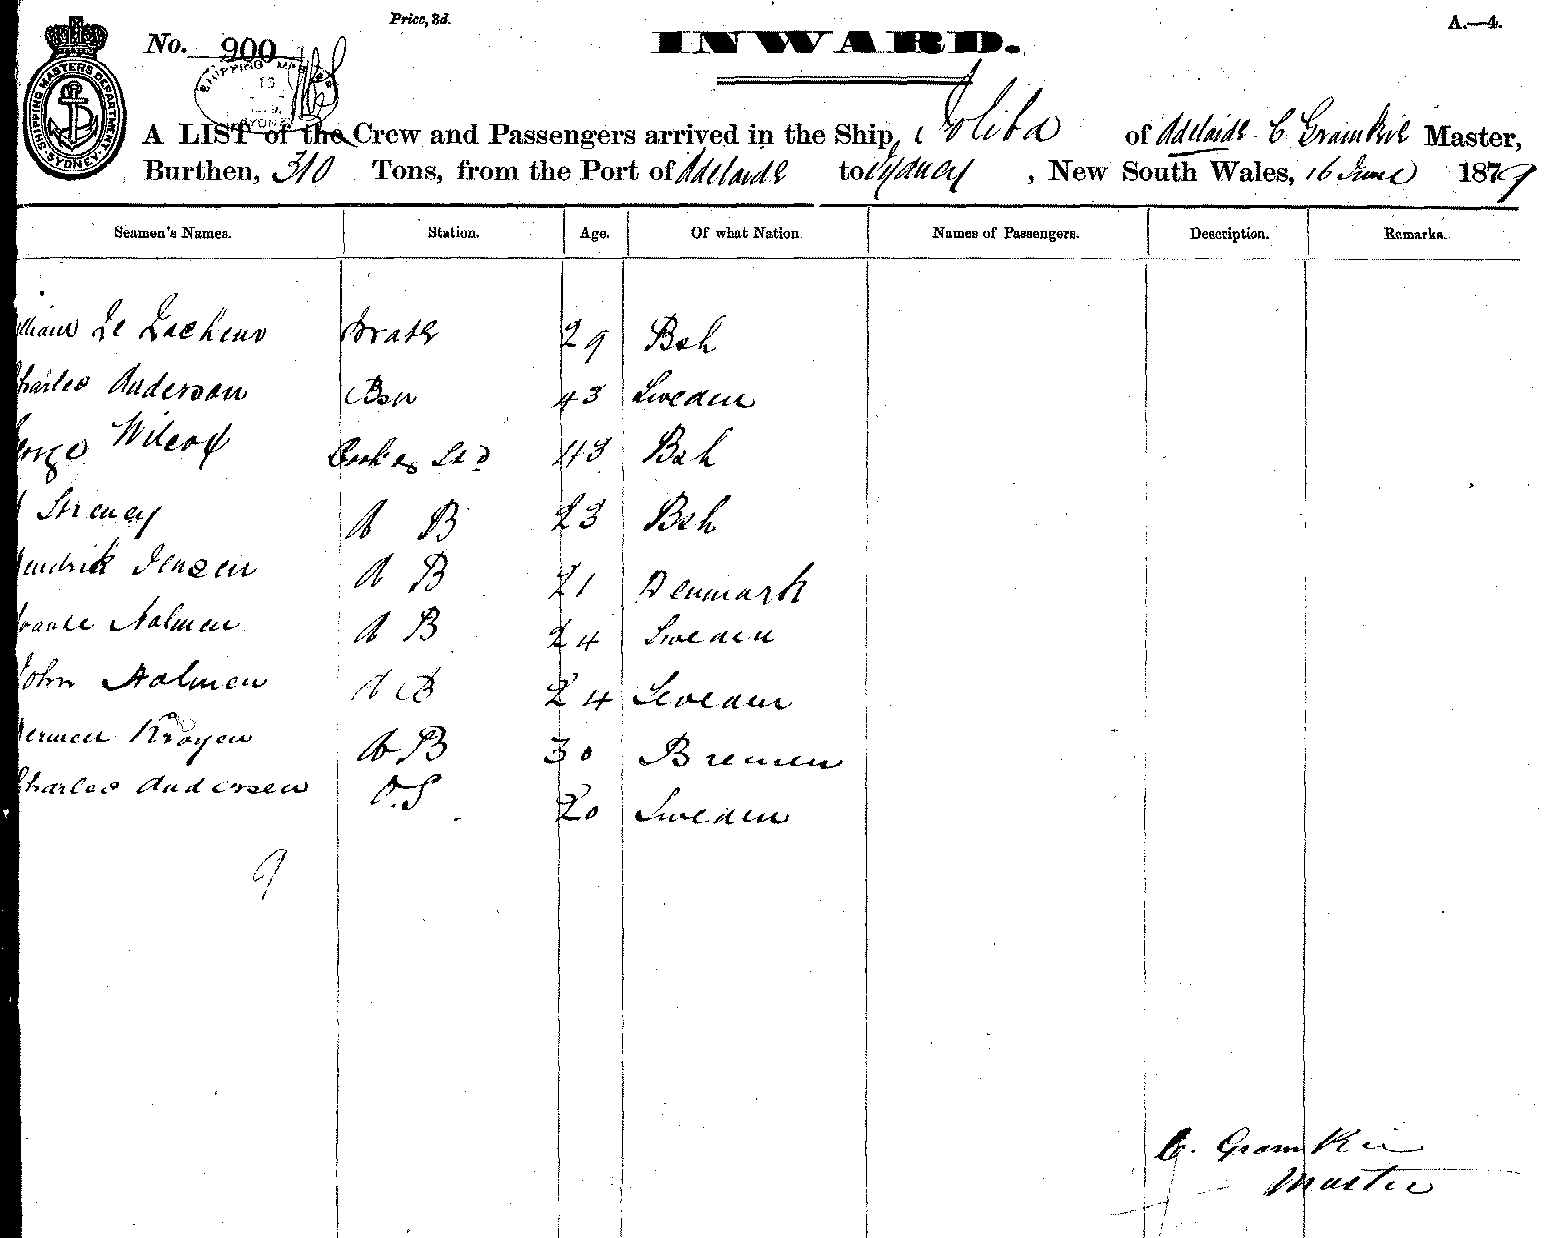 Price, 3d.
A.—4.
No. 900
INWARD.
SHIPPING MASTERS DEPARTMENT
SYDNEY
A LIST of the Crew and Passengers arrived in the Ship, of Adelaide C Gramkie Master,
Burthen, 310 Tons, from the Port of Adelaide to Sydney, New South Wales, 16 June 1879
Seamen's Names. Station. Age. Of what Nation Names of Passengers. Description. Remarks.
Le Lacheur Mate 29 Bsh
Charles Anderson Bsn 43 Sweden
George Wilcox Cook & Std 43 Bsh
A B 23 Bsh
Hendrik Jensen A B 21 Denmark
Holmen A B 24 Sweden
John Holmen A B 24 Sweden
Hermen Kroyen A B 30 Bremen
Charles Andersen O.S 20 Sweden
9
C. Gramkie
Master